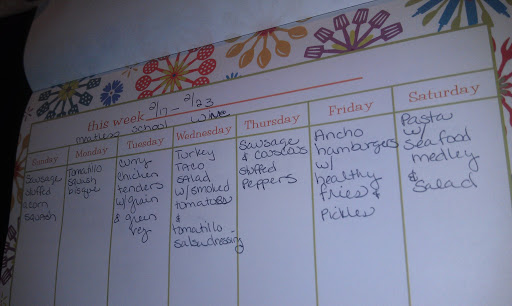 this week 2/17 - 2/23
meatless school wine
Sunday
Sausage
stuffed
acorn
squash
Monday
Tomatillo
squash
bisque
Tuesday
curry
chicken
tenders
w/ grain
& green
veg
Wednesday
Turkey
Taco
salad
w/ smoked
tomatoes
&
tomatillo
salsa dressing
Thursday
Sausage
& couscous
stuffed
peppers
Friday
Ancho
hamburgers
w/
healthy
fries &
pickles
Saturday
Pasta
w/
seafood
medley
&
salad